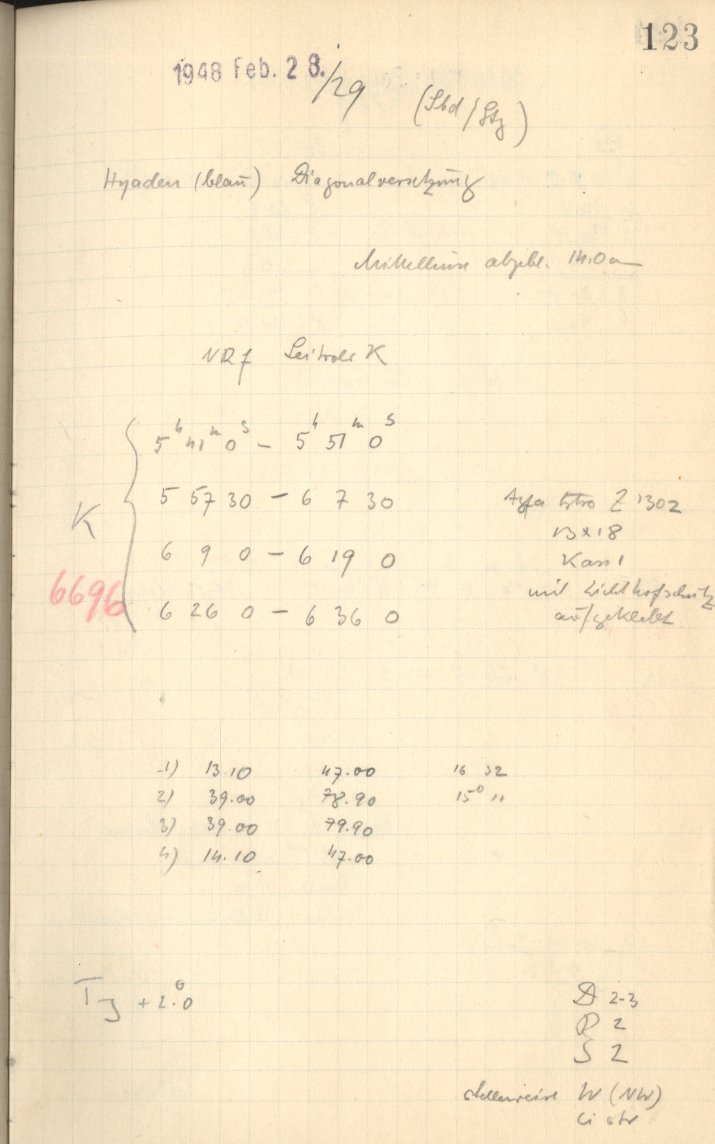 123
1948 Feb. 28./29 (Sbd/Stz)
Hyaden (blau) Diagonalversetzung
Mittellinse abgebl. 14.0 cm
NRf Leitrohr K
5ʰ 41ᵐ 0ˢ — 5ʰ 51ᵐ 0ˢ
5 57 30 — 6 7 30
6 9 0 — 6 19 0
6 26 0 — 6 36 0
K
6696
Agfa Astro Z 1302
13 x 18
Kass 1
mit Lichthofschutz
aufgeklebt
1) 13.10 47.00 16 32
2) 39.00 78.90 15° 11
3) 39.00 79.90
4) 14.10 47.00
T_J + 2.°0
D 2-3
R 2
S 2
stellenweise W (NW)
Ci str